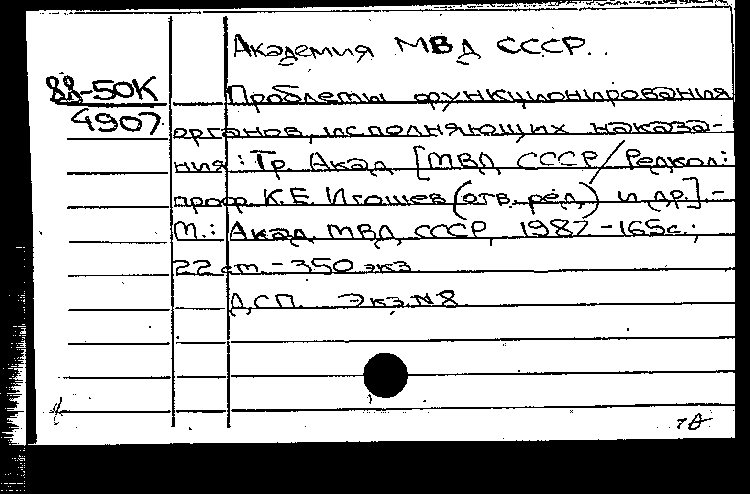 Академия МВД СССР.
88-50К
4907
Проблемы функционирования
органов, исполняющих наказа-
ния: Тр. Акад. [МВД СССР / Редкол:
проф. К.Е. Игошев (отв. ред.) и др.]. -
М.: Акад. МВД СССР, 1987. - 165с.;
22 см. - 350 экз.
ДСП. Экз. N 8.